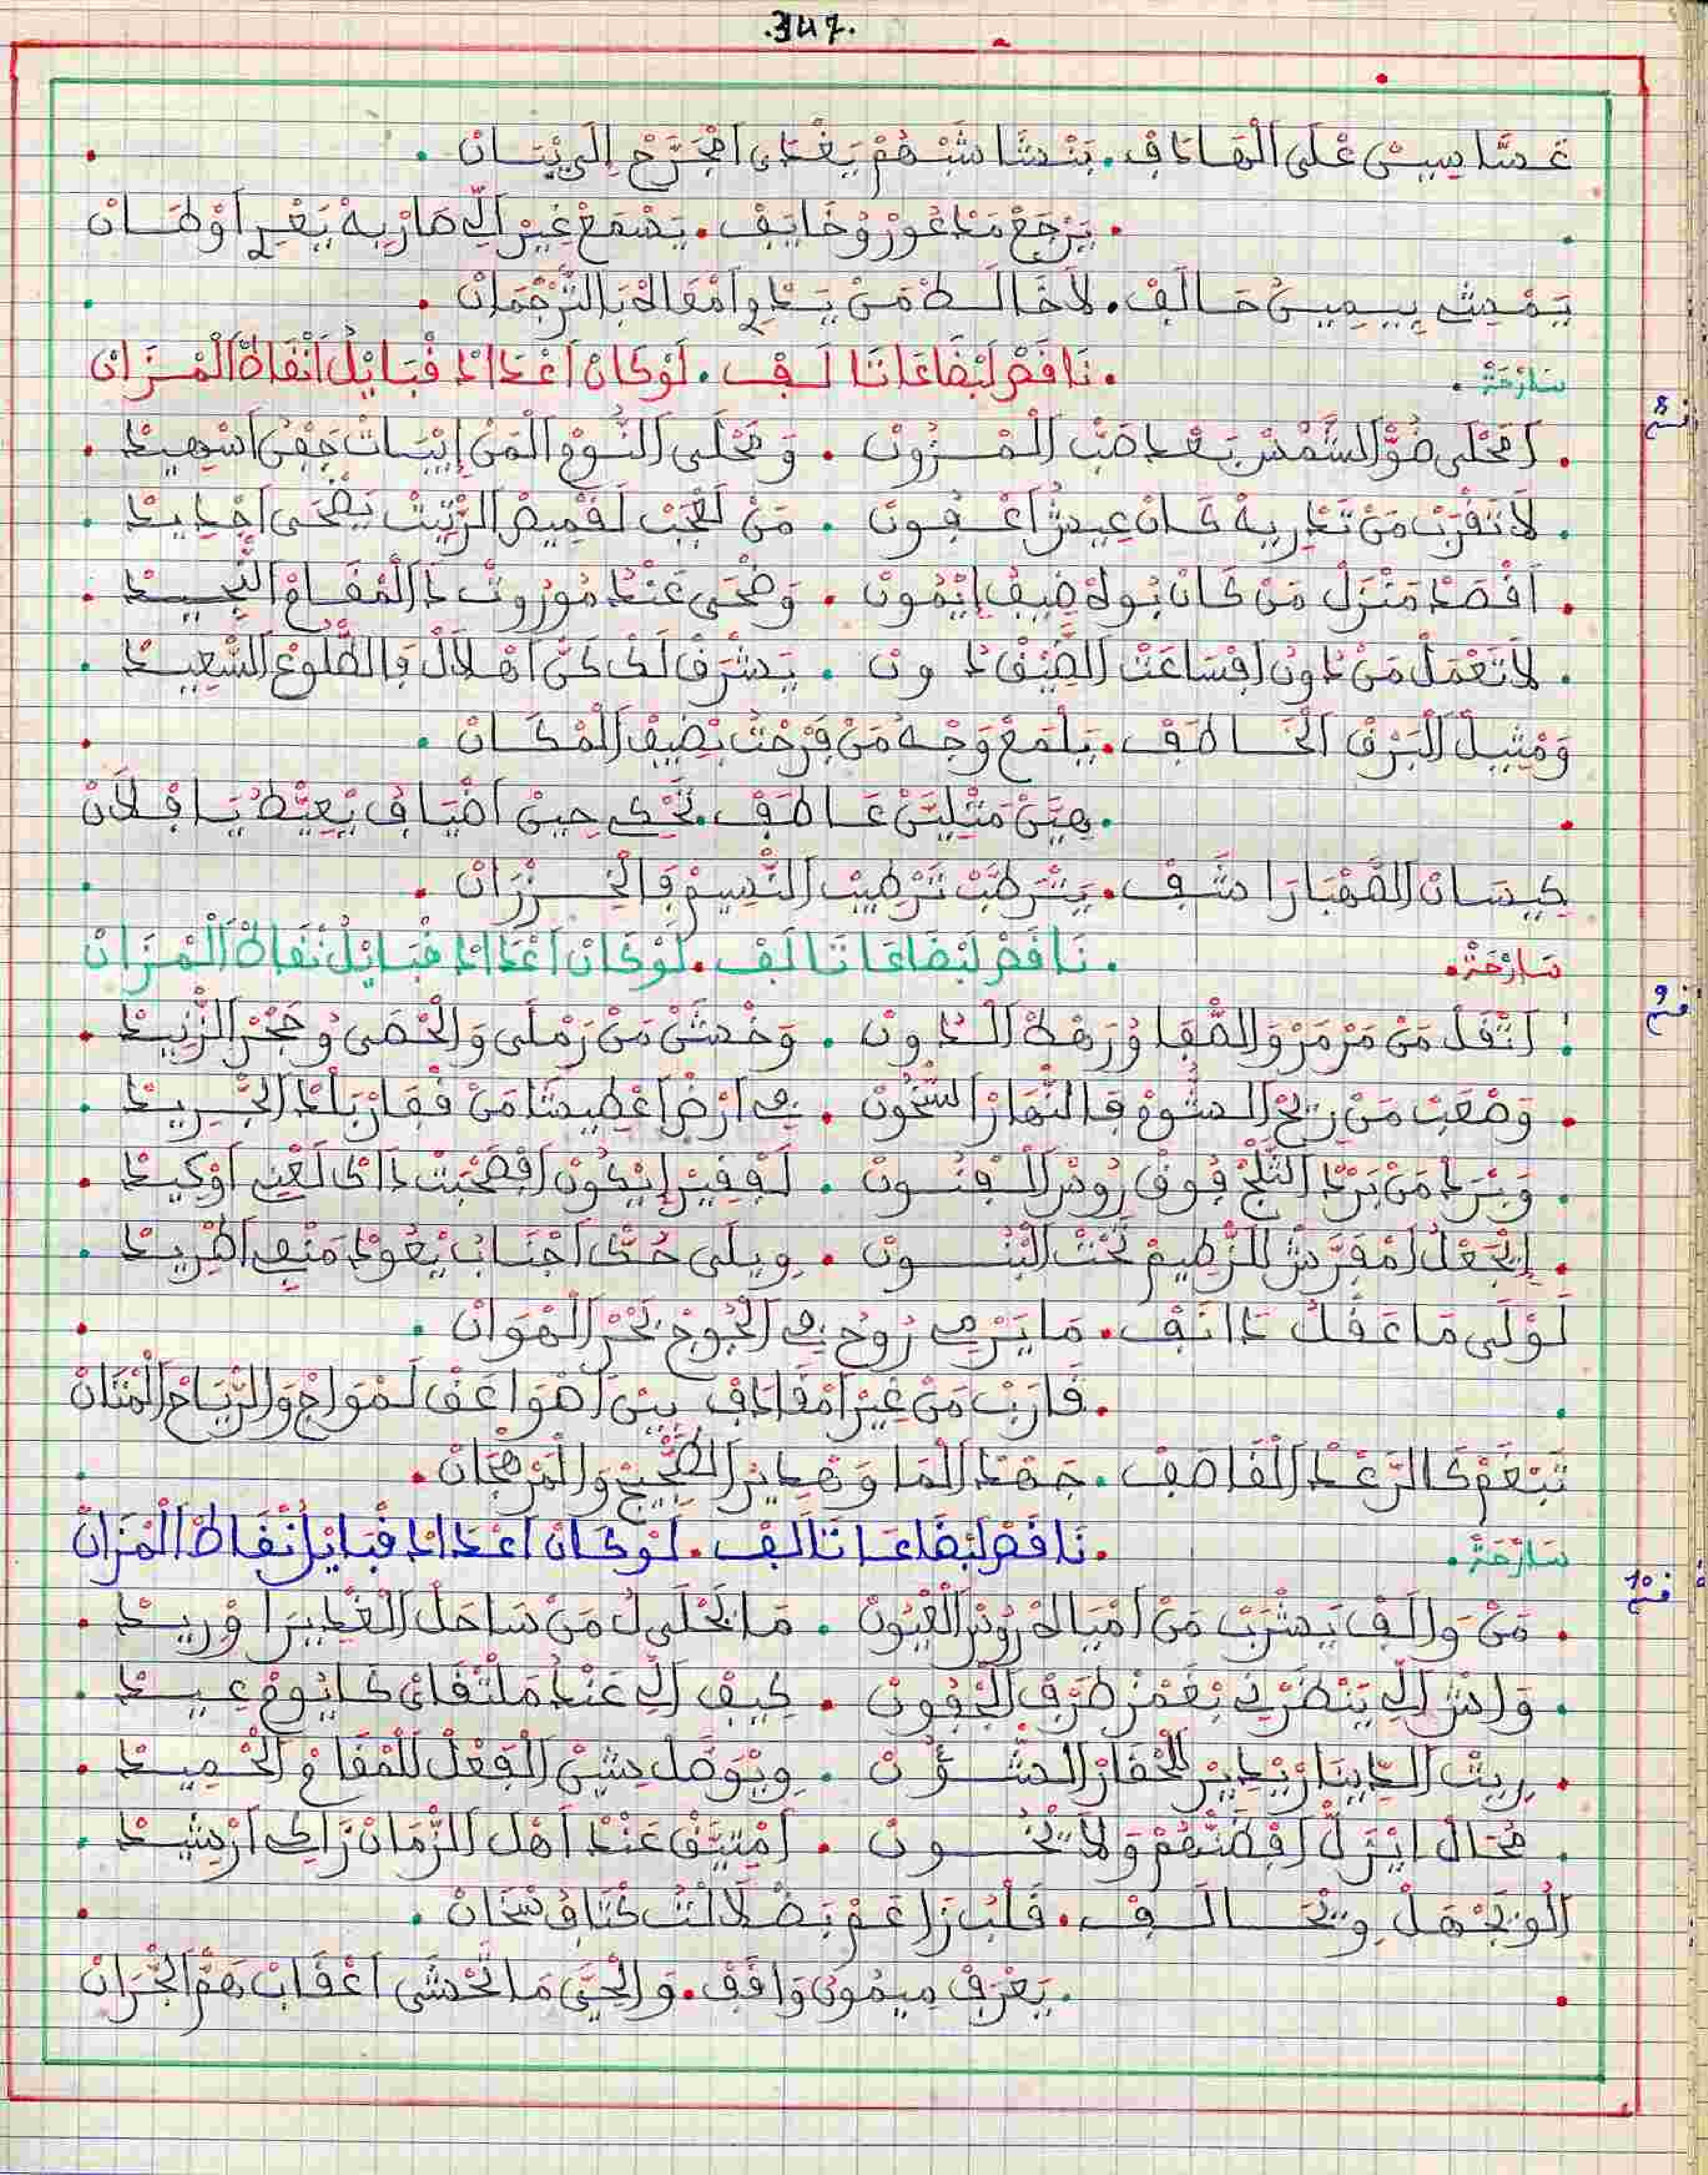 .347.
عسَّاسِينْ عْلَى الْهَادَفْ. بَنْشَاشَبْهُمْ يَغْدَى امْجَرَّحْ إِلَى بْيَانْ .
. يَرْجَعْ مَدْعُورْ وُخَايَفْ. يَسْمَعْ غِيرْ الِّي صَارْ بِهْ بَغْيِرْ اَوْطَانْ
يَمْشِي بِيمِينُ حَالَفْ. لَا خَالَطْ مَنْ يَدْوِي امْعَاهْ بَالتَّرْجْمَانْ .
سَارْحَةْ . . نَاقَصْ لَبْضَاعَا تَالَفْ. لَوْكَانْ اعْدَادْ قْبَايْلُ انْقَاطْ الْمْزَانْ
قسم 8
. اَمْحْلَى ضَوّْ الشَّمْسْ بَعْد صَبّْ الْمْزُونْ . وَمْحْلَى النُّومْ الْمَنْ إِيْبَاتْ جَفْنُ اسْهِيدْ .
. لَا تَقْرَبْ مَنْ تَدْرِيهْ كَانْ عِيشْ اعْفُونْ . مَنْ لَعْجَبْ لَقْمِيصْ الرّْتِيتْ يَضْحَى اجْدِيدْ .
. اَقْصَدْ مَنْزَلْ مَنْ كَانْ بُوهْ ضِيفُ إِيْمُونْ . وَضْحَى عَنْدُ مُورُوتْ دَالْمْقَامْ النّْجِيدْ .
. لَا تَعْمَلْ مَنْ دُونْ اَفْسَاعَتْ الضِّيفْ دُونْ . يَشْرَفْ لَكْ كَنْ اهْلَالْ فَالطّْلُوعْ السّْعِيدْ .
وَمْثِيلْ الْبَرْقْ الْخَاطَفْ. يَلْمَعْ وَجْهُ مَنْ فَرْحْتُ بْضِيفْ الْمْكَانْ .
. هِيَّنْ مَتْلِيَّنْ عَاطَفْ. يَحْكِي حِينْ اضْيَافُ يْعِيَّطْ يَا فْلَانْ
كِيسَانْ الصَّهْبَا رَاشَفْ. يَتْرَطَّبْ تَرْطِيبْ النّْسِيمْ فَالْخْزْرَانْ .
سَارْحَةْ. . نَاقَصْ لَبْضَاعَا تَالَفْ. لَوْكَانْ اعْدَادْ قْبَايْلُ نْقَاطْ الْمْزَانْ
قسم 9
: اَتْقَلْ مَنْ مَرْمَرْ وَالصّْفَا وُرَهْطْ الدُّونْ . وَخْشَنْ مَنْ رَمْلَى وَالْحْصَى وُحَجْرْ الزّْنِيدْ .
. وَصْعَبْ مَنْ رِيحْ السُّومْ فَالنّْهَارْ السّْخُونْ . فِي ارْضْ اعْطِيشَا مَنْ قْفَارْ بَلَادْ الْجْرِيدْ .
. وَبْرَدْ مَنْ بَرْدْ الثَّلْجْ فُوقْ رُوسْ الْفْنُونْ . لَفْقِيرْ إِيْكُونْ اَفْصَحْبَتْ دَاكْ لَغْنِي اوْكِيدْ .
. اِيَجْعْلُ امْفَرَّشْ لَلرّْطِيمْ تَحْتْ الْبْنُونْ . وِيلَى حُكّْ اجْنَابُ يْعُودْ مَنْفِي اطْرِيدْ .
لَوْلَى مَا عَقْلُ دَانَفْ. مَا يَرْمِي رُوحُ فِي الْجُوجْ بَحْرْ الْهْوَانْ .
. قَارَبْ مَنْ غِيرْ امْقَادَفْ بِينْ اهْوَاعَفْ لَمْوَاجْ وَالرّْيَاحْ الْمْتَانْ
تَبْغَمْ كَالرَّعْدْ الْقَاصَفْ. جَهْدْ الْمَا وَهْدِيرْ الضّْجِيجْ وَالْمَرْهْجَانْ.
سَارْحَةْ. . نَاقَصْ لَبْضَاعَا تَالَفْ. لَوْكَانْ اعْدَادْ قْبَايْلُ نْقَاطْ الْمْزَانْ
قسم 10
. مَنْ وَالَفْ يَشْرَبْ مَنْ امْيَاهْ رُوسْ الْعْيُونْ . مَا يَحْلَى لُ مَنْ سَاحَلْ الْغْدِيرَا وْرِيدْ .
. وَاشْ الِّي يَنْظَرْنِي بْغَمْزْ طَرْفْ الْجْفُونْ . كِيفْ الِّي عَنْدُ مَلْتْقَايْ كَايُومْ عِيدْ .
. رِيتْ الدِّينَارْ يْدِيرْ لَلْحْقَارْ الشُّؤُنْ . وِيْوَصَّلْ شِينْ الْفَعْلْ لَلْمْقَامْ الْحْمِيدْ .
. مُحَالْ ايْزَلّْ اَفْضَنّْهُمْ وَلَا يْخُونْ . اَمْتِيَّقْ عَنْدْ اَهْلْ الزّْمَانْ زَاكِي ارْشِيدْ .
اَلُّو يَجْهَلْ وِيْخَالَفْ. قَلْبُ زَاعَمْ بَضْلَالْتُ كْتَافُ سْخَانْ .
. يَعْرَفْ مِيمُونُ وَاقَفْ. وَالْحَيّْ مَا يَخْشَى اعْقَابْ هَمّْ الْجْرَانْ